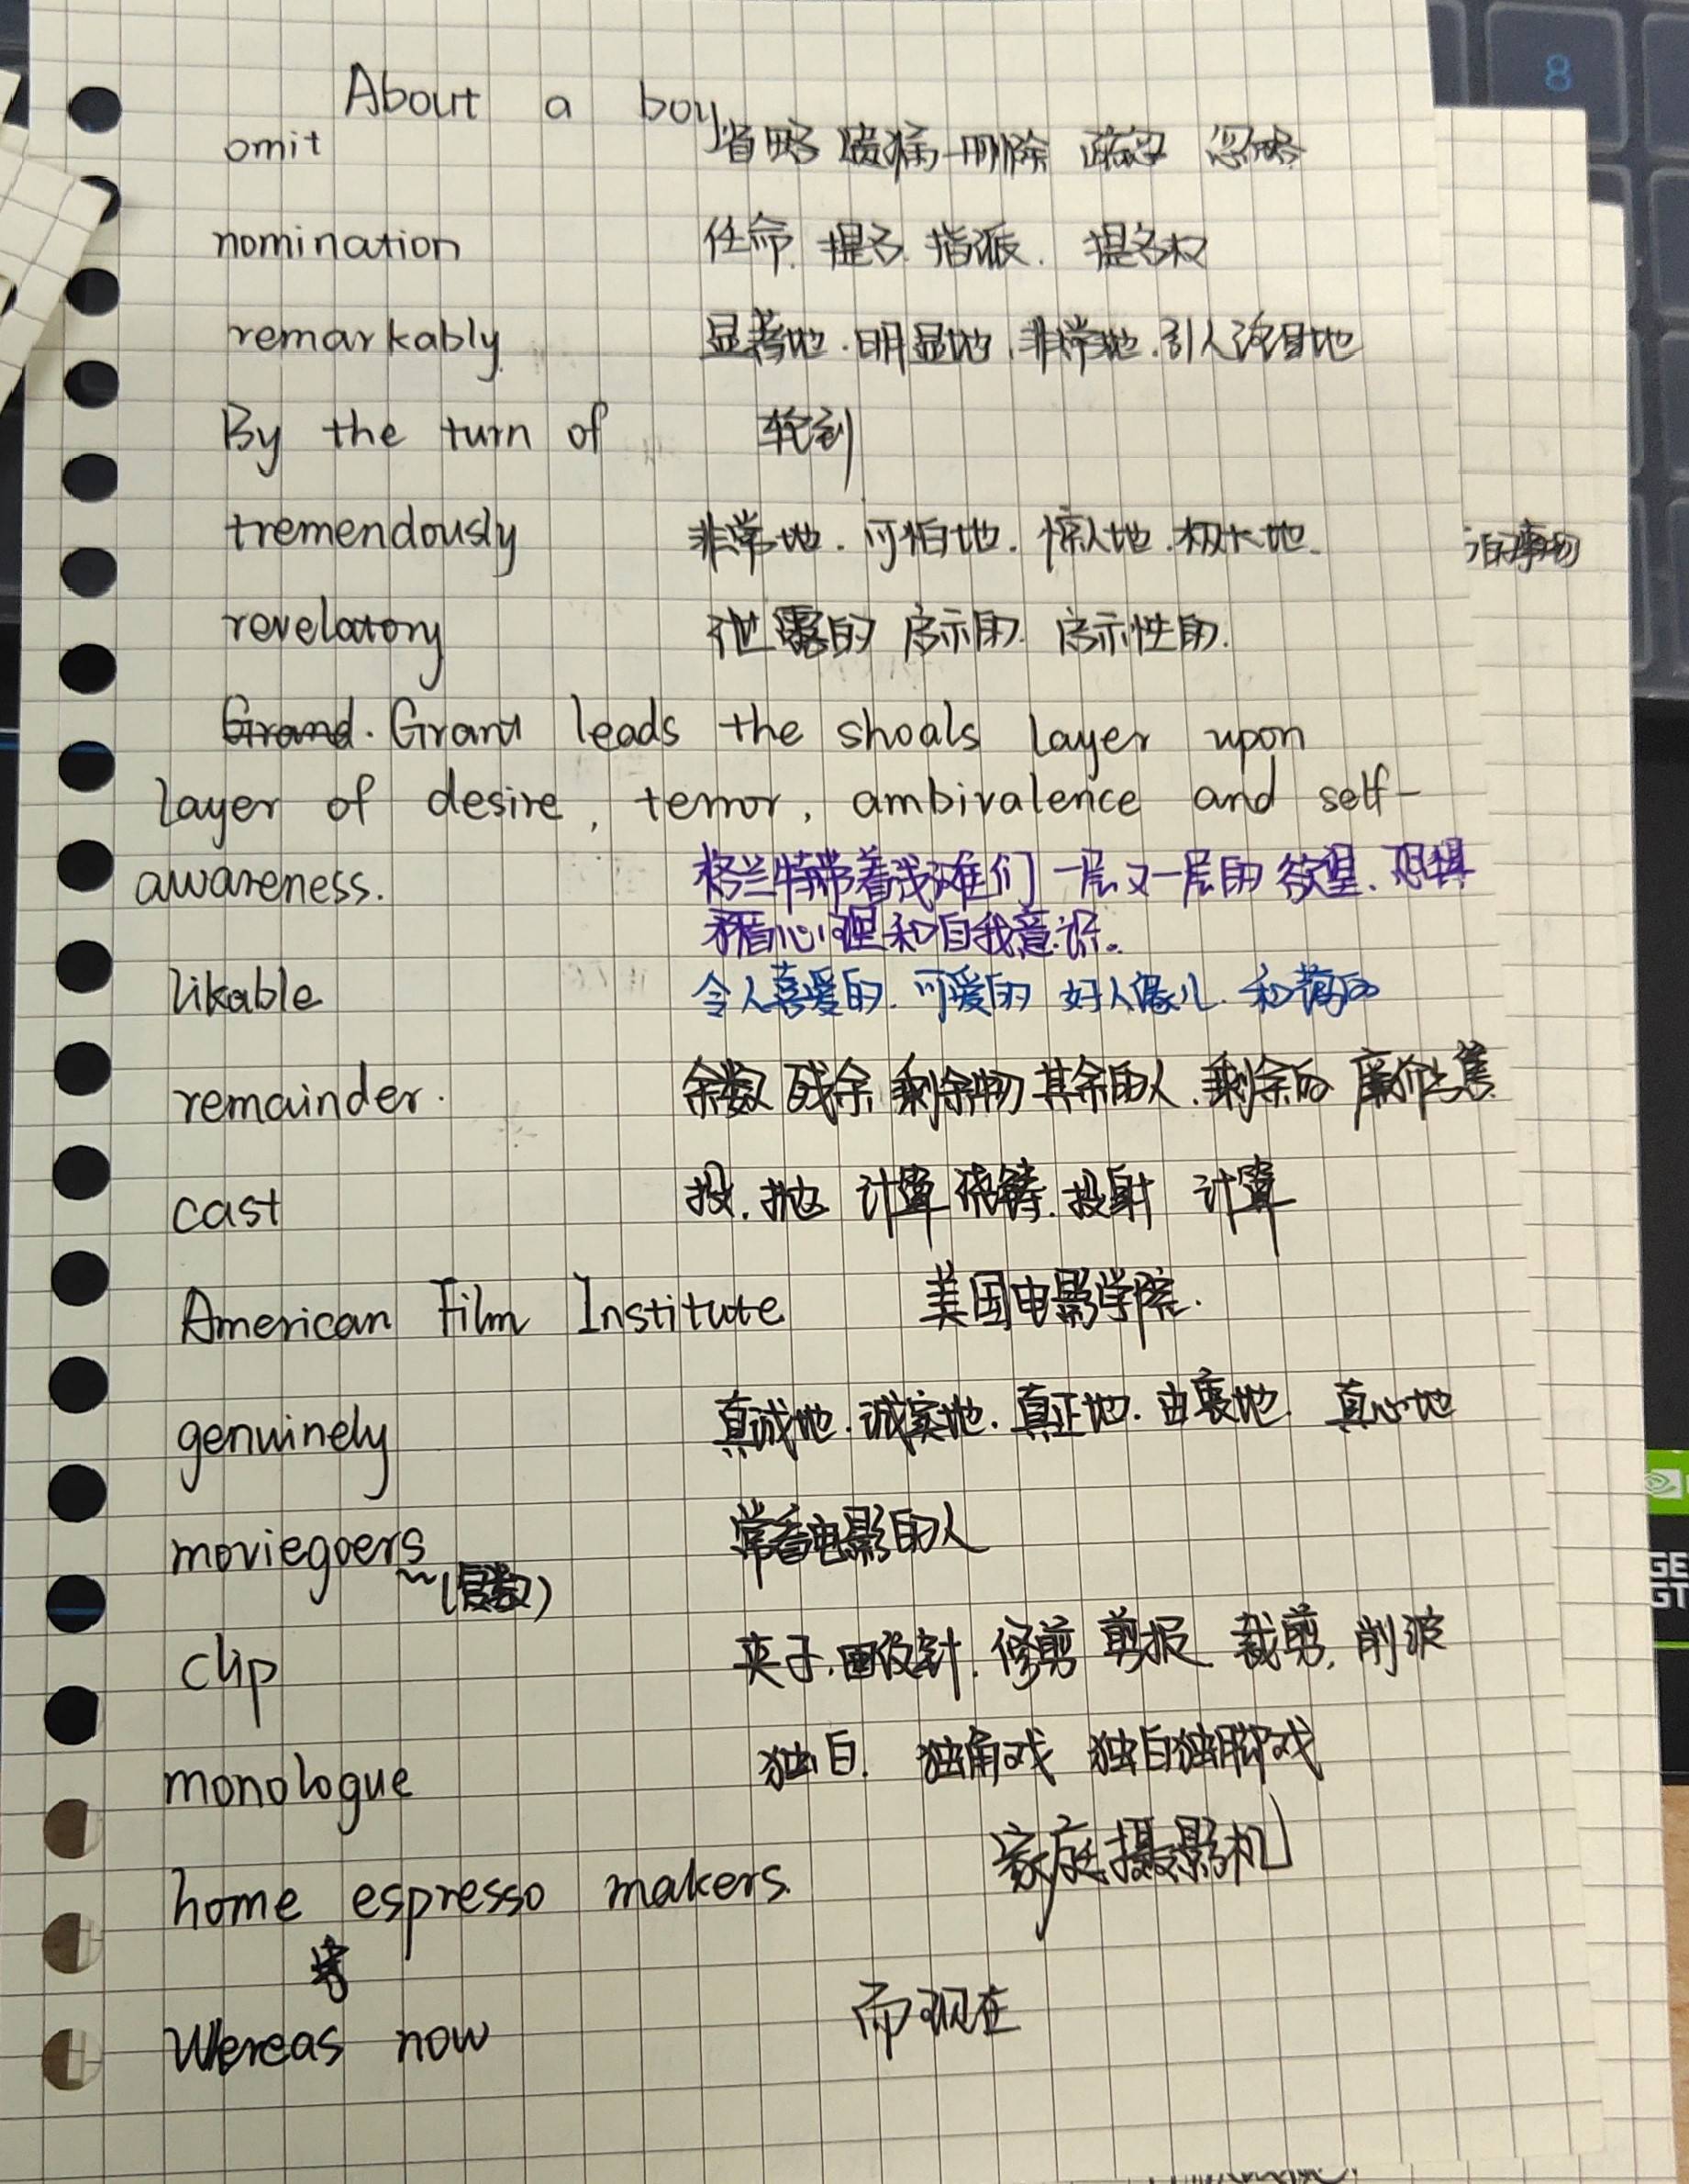 About a boy
omit 省略 遗漏 删除 疏忽 忽略
nomination 任命. 提名. 指派. 提名权
remarkably 显著地. 明显地. 非常地. 引人注目地
By the turn of 轮到
tremendously 非常地. 可怕地. 惊人地. 极大地.
怕事物
revelatory 泄露的 启示的. 启示性的.
Grand. Grant leads the shoals layer upon
layer of desire, terror, ambivalence and self-
awareness. 格兰特带着浅滩们一层又一层的欲望、恐惧
矛盾心理和自我意识。
likable 令人喜爱的. 可爱的 好人缘儿. 和蔼的
remainder. 余数 残余 剩余物 其余的人. 剩余的 廉价出售
cast 投. 抛 计算 浇铸. 投射 计算
American Film Institute 美国电影学院.
genuinely 真诚地. 诚实地. 真正地. 由衷地. 真心地
moviegoers 常看电影的人
(复数)
clip 夹子. 回形针. 修剪 剪报 裁剪. 削波
monologue 独白. 独角戏 独白独脚戏
home espresso makers. 家庭摄影机
Whereas now 而现在
8
GE
GT